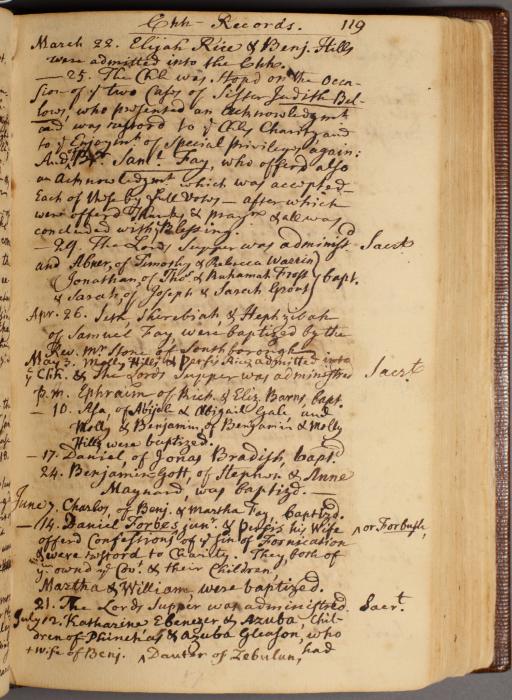 Chh- Records. 119
March 22. Elijah Rice & Benj. Hills
were admitted into the Chh.
— 25. The Chh was Stopd on the Occa-
sion of ye two Cases of Sister Judith Bel-
lows, who presented an Acknowledgmt
and was restord to ye Chhs Charity and
to ye Enjoymt of Special Privileges again:
And Saml. Fay, who offerd also
an Acknowledgment which was accepted —
Each of these by full Votes — after which
were offerd Thanks & prayrs & all was
concluded with ye Blessing.
— 29. The Lords Supper was administd Sacrt.
and Abner, of Timothy & Rebecca Warrin
Jonathan, of Thos. & Ruhamah Frost bapt.
& Sarah, of Joseph & Sarah Grout
Apr. 26. Seth Sherebiah & Hephzibah
of Samuel Fay were baptized by the
Revd. Mr Stone of Southborough
May 3. Molly Hills & Persis Rice admitted into
ye Chh. & The Lords Supper was administred Sacrt.
p.m. Ephraim of Rich. & Eliz. Barns, bapt.
— 10. Asa, of Abijah & Abigail Gale and
Molly & Benjamin, of Benjamin & Molly
Hills were baptized.
— 17. Daniel of Jonas Bradish, baptd
24. Benjamin Gott, of Stephen & Anne
Maynard, was baptizd. —
June 7. Charles, of Benj. & Martha Fay, baptizd.
— 14. Daniel Forbes junr. & Persis his Wife ^ or Forbush,
offerd Confessions of ye Sin of Fornication
& were restord to Charity. They both of
ym own'd ye Covt. & their Children
Martha & William, were baptized.
21. The Lords Supper was administred. Sacrt.
July 12. Katharine Ebenezer & Azuba, Chil-
dren of Phinehas & Azuba Gleason, who
+ wife of Benj. ^ Daughter of Zebulun, had